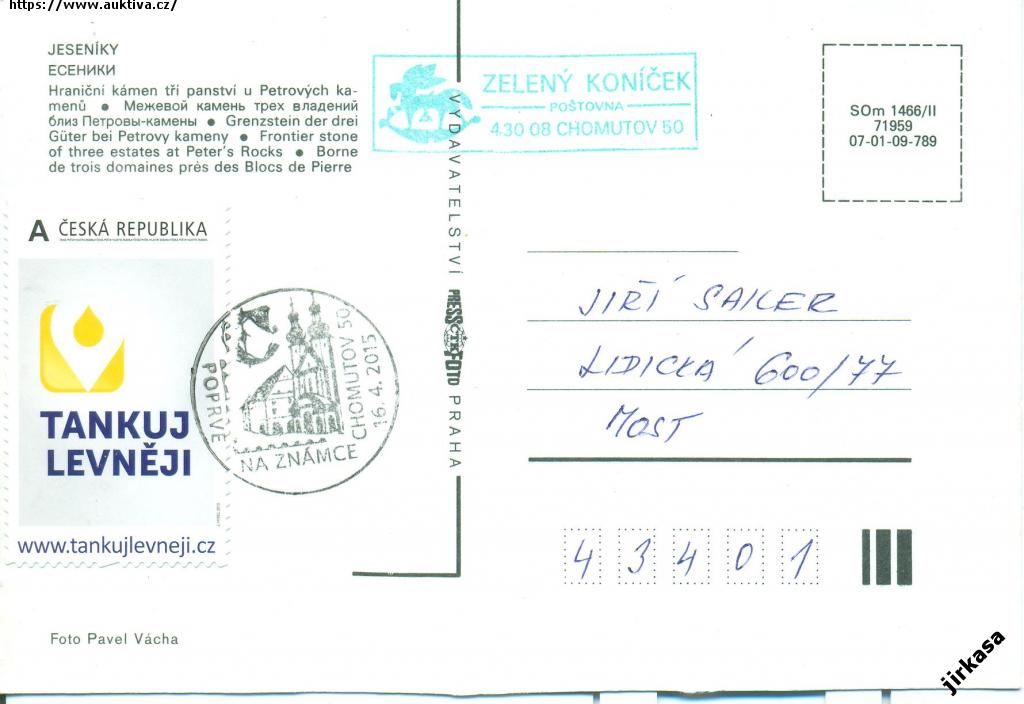 https://www.auktiva.cz/
JESENÍKY
ЕСЕНИКИ
Hraniční kámen tří panství u Petrových ka-
menů ● Межевой камень трех владений
близ Петровы-камены ● Grenzstein der drei
Güter bei Petrovy kameny ● Frontier stone
of three estates at Peter's Rocks ● Borne
de trois domaines près des Blocs de Pierre
ZELENÝ KONÍČEK
POŠTOVNA
430 08 CHOMUTOV 50
SOm 1466/II
71959
07-01-09-789
VYDAVATELSTVÍ PRESSFOTO ČTK PRAHA
A ČESKÁ REPUBLIKA
TANKUJ
LEVNĚJI
www.tankujlevneji.cz
POPRVÉ
NA ZNÁMCE
CHOMUTOV 50
16.4.2015
JIŘÍ SAILER
LIDICKÁ 600/77
MOST
43401
Foto Pavel Vácha
jirkasa